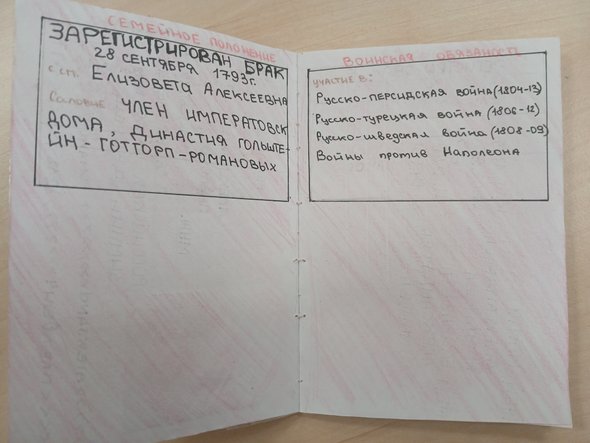 СЕМЕЙНОЕ ПОЛОЖЕНИЕ
ЗАРЕГИСТРИРОВАН БРАК
28 СЕНТЯБРЯ 1793г.
с гр. ЕЛИЗОВЕТА АЛЕКСЕЕВНА
Сословие ЧЛЕН ИМПЕРАТОВСК
ДОМА, ДИНАСТИЯ ГОЛЬШТЕ-
ЙН-ГОТТОРП-РОМАНОВЫХ
ВОИНСКАЯ ОБЯЗАНОСТЬ
УЧАСТИЕ В:
РУССКО-ПЕРСИДСКАЯ ВОЙНА (1804-13)
РУССКО-ТУРЕЦКАЯ ВОЙНА (1806-12)
РУССКО-ШВЕДСКАЯ ВОЙНА (1808-09)
ВОЙНЫ ПРОТИВ НАПОЛЕОНА